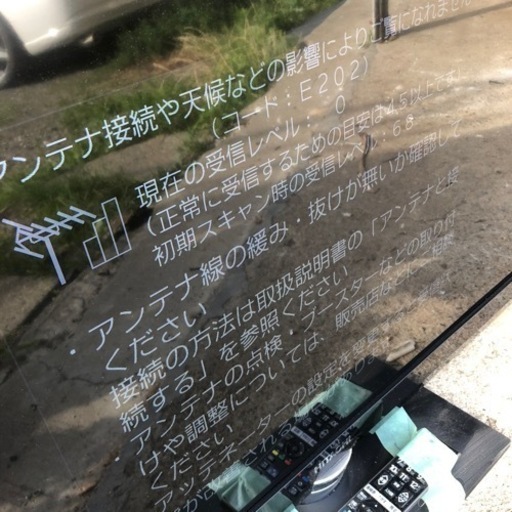 アンテナ接続や天候などの影響によりご覧になれません
（コード：E202）
現在の受信レベル： 0
（正常に受信するための目安は45以上です）
初期スキャン時の受信レベル：68
・アンテナ線の緩み・抜けが無いか確認して
ください
接続の方法は取扱説明書の「アンテナと接
続する」を参照ください
・アンテナの点検・ブースターなどの取り付
けや調整については、販売店などに
ください
アッテネーターの設定を